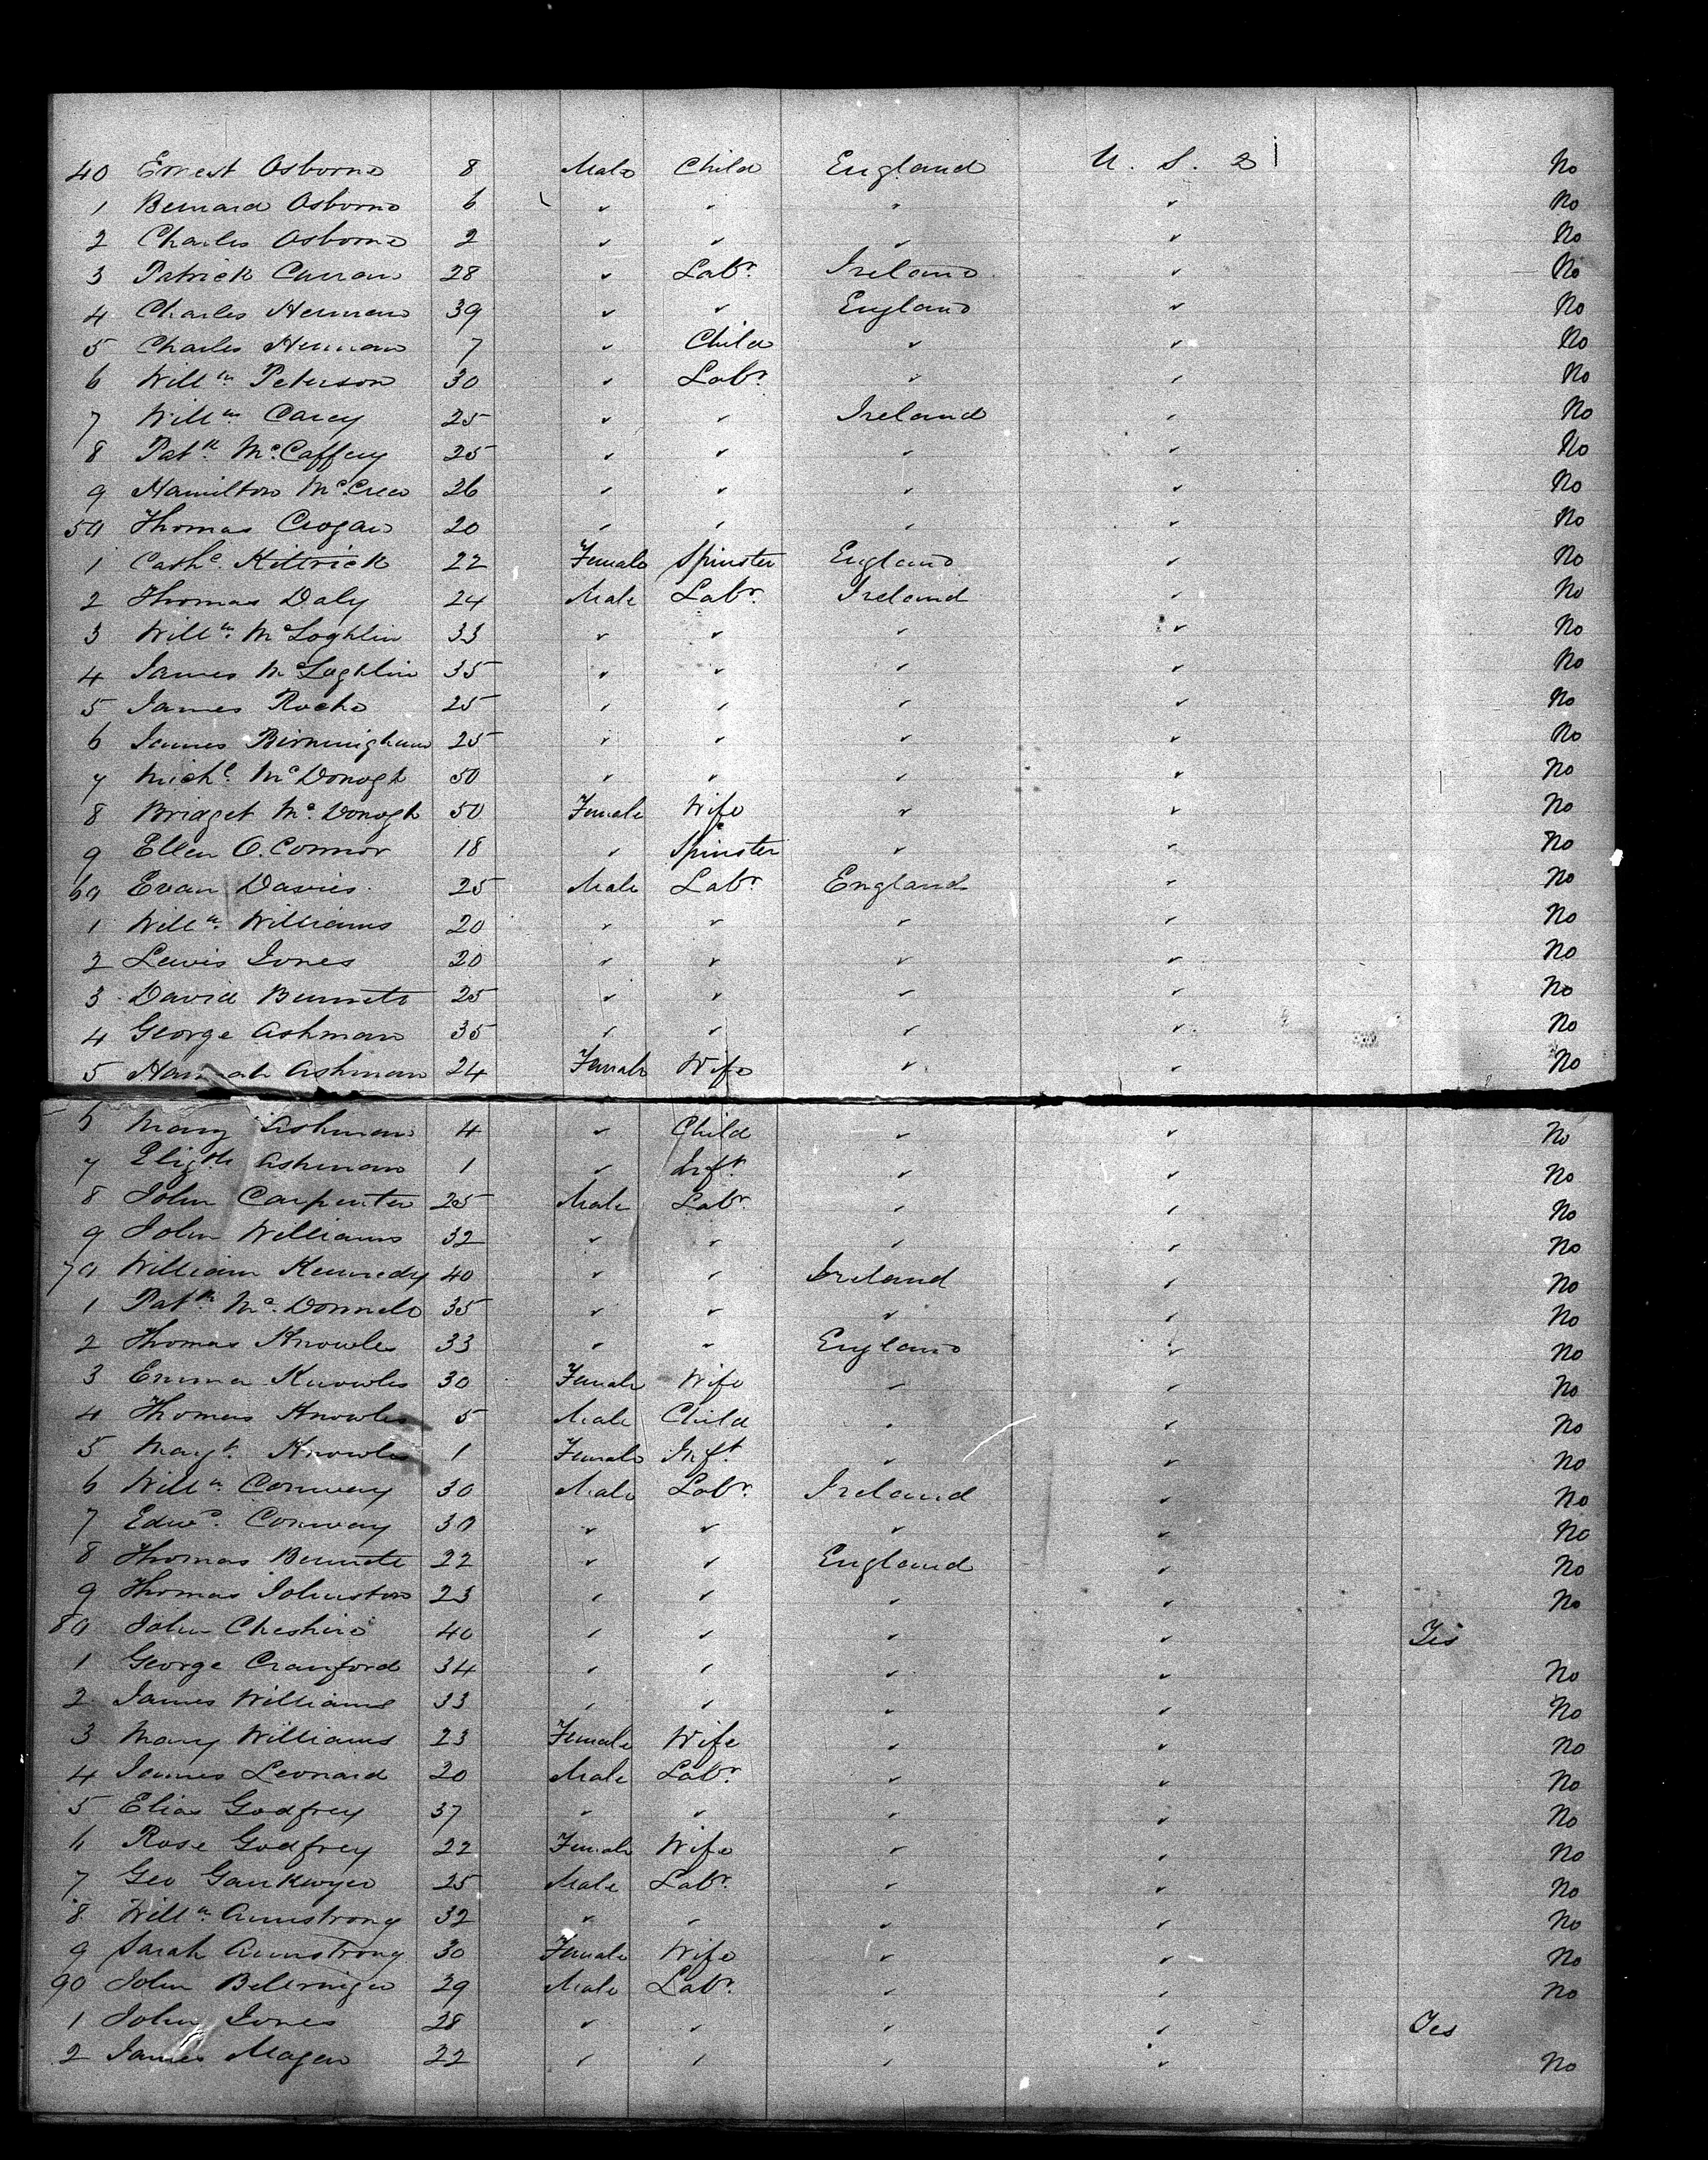 40 Ernest Osborne 8 Male Child England U. S. No
1 Bernard Osborne 6 " " " " No
2 Charles Osborne 2 " " " " No
3 Patrick Curran 28 " Labr. Ireland " No
4 Charles Herman 39 " " England " No
5 Charles Herman 7 " Child " " No
6 Willm Peterson 30 " Labr. " " No
7 Willm. Carey 25 " " Ireland " No
8 Patk. McCaffery 25 " " " " No
9 Hamilton McCrea 26 " " " " No
50 Thomas Crogan 20 " " " " No
1 Cathe. Kittrick 22 Female Spinster England " No
2 Thomas Daly 24 Male Labr. Ireland " No
3 Willm. McLoghlin 33 " " " " No
4 James McLoghlin 35 " " " " No
5 James Roche 25 " " " " No
6 James Birmingham 25 " " " " No
7 Michl. McDonogh 50 " " " " No
8 Bridget McDonogh 50 Female Wife " " No
9 Ellen O.Connor 18 " Spinster " " No
60 Evan Davies 25 Male Labr. England " No
1 Willm. Williams 20 " " " " No
2 Lewis Jones 20 " " " " No
3 David Bennett 25 " " " " No
4 George Ashman 35 " " " " No
5 Hannah Ashman 24 Female Wife " " No
6 Mary Ashman 4 " Child " " No
7 Elizth Ashman 1 " Inft. " " No
8 John Carpenter 25 Male Labr. " " No
9 John Williams 32 " " " " No
70 William Kennedy 40 " " Ireland " No
1 Patk. McDonnell 35 " " " " No
2 Thomas Knowles 33 " " England " No
3 Emma Knowles 30 Female Wife " " No
4 Thomas Knowles 5 Male Child " " No
5 Margt. Knowles 1 Female Inft. " " No
6 Willm. Conway 30 Male Labr. Ireland " No
7 Edwd. Conway 30 " " " " No
8 Thomas Bennett 22 " " England " No
9 Thomas Johnston 23 " " " " No
80 John Cheshire 40 " " " " Yes
1 George Cranford 34 " " " " No
2 James Williams 33 " " " " No
3 Mary Williams 23 Female Wife " " No
4 James Leonard 20 Male Labr. " " No
5 Elias Godfrey 37 " " " " No
6 Rose Godfrey 22 Female Wife " " No
7 Geo 25 Male Labr. " " No
8 Willm. Armstrong 32 " " " " No
9 Sarah Armstrong 30 Female Wife " " No
90 John 29 Male Labr. " " No
1 John Jones 28 " " " " Yes
2 James Magen 22 " " " " No